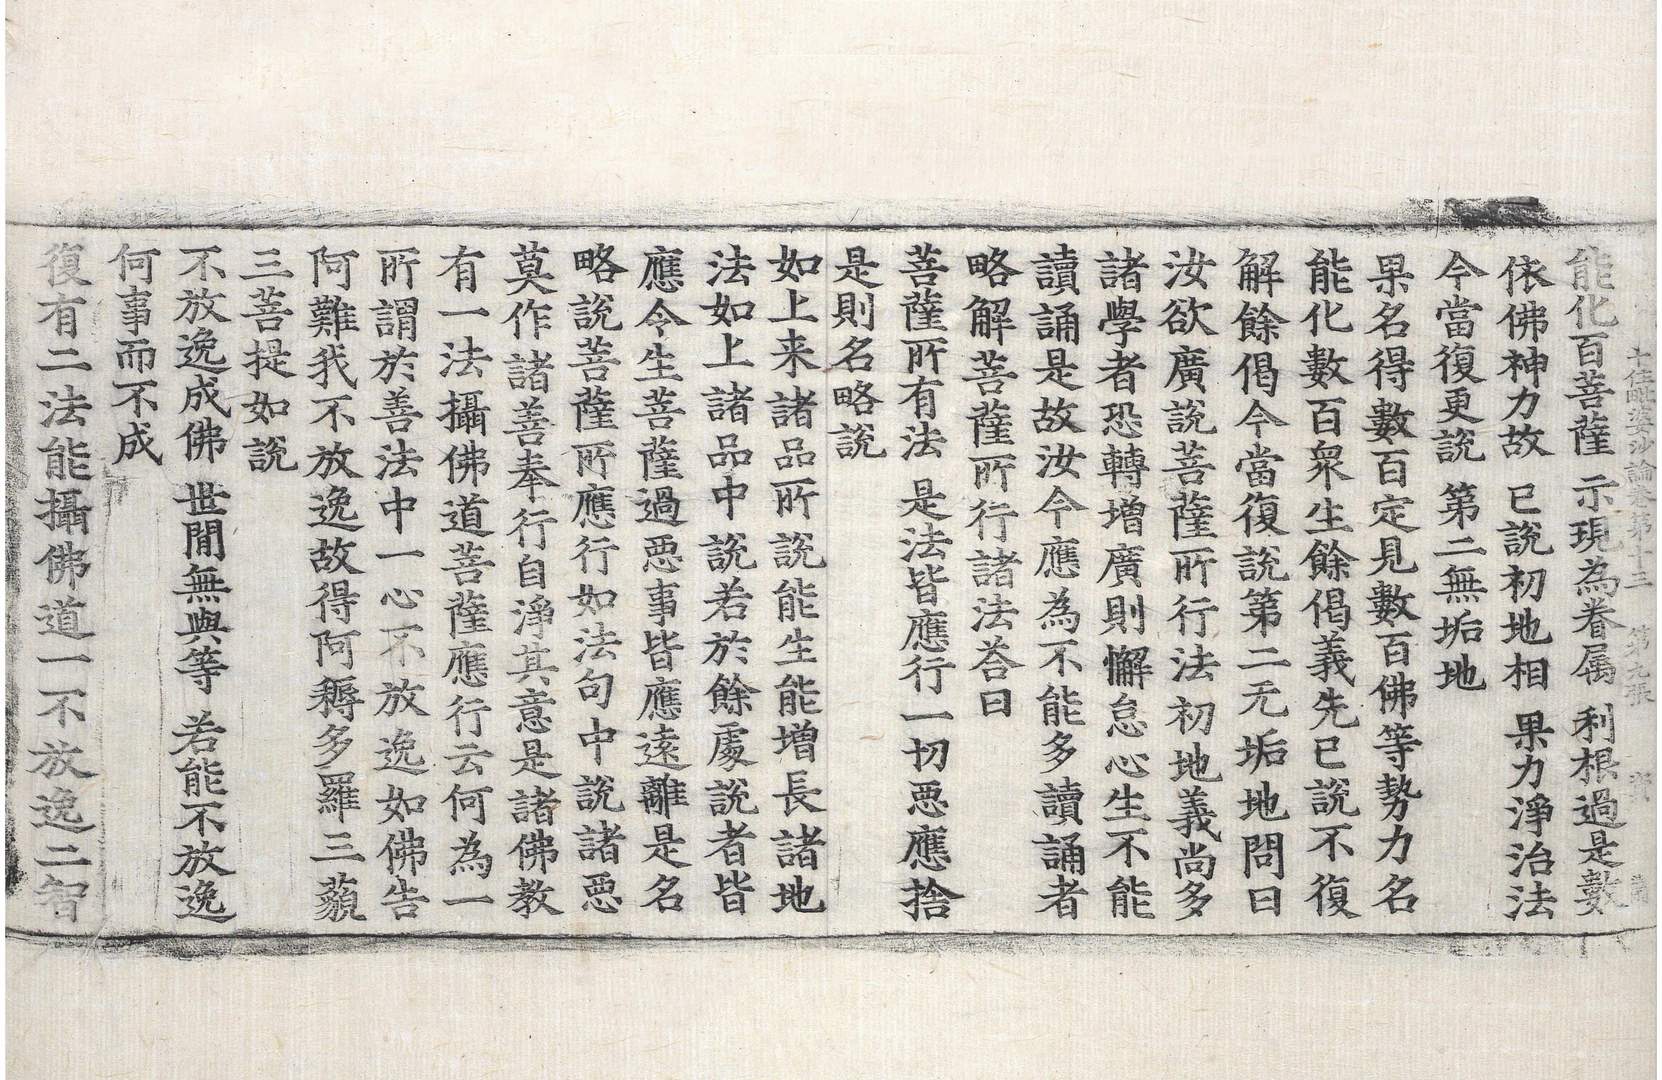 十住毗婆沙論卷第十三 第九張
能化百菩薩 示現為眷属 利根過是數
依佛神力故 已說初地相 果力淨治法
今當復更說 第二無垢地
果名得數百定見數百佛等勢力名
能化數百衆生餘偈義先已說不復
解餘偈今當復說第二无垢地問曰
汝欲廣說菩薩所行法初地義尚多
諸學者恐轉增廣則懈怠心生不能
讀誦是故汝今應為不能多讀誦者
略解菩薩所行諸法荅曰
菩薩所有法 是法皆應行 一切悪應捨
是則名略說
如上来諸品所說能生能增長諸地
法如上諸品中說若於餘處說者皆
應令生菩薩過悪事皆應遠離是名
略說菩薩所應行如法句中說諸悪
莫作諸善奉行自淨其意是諸佛教
有一法攝佛道菩薩應行云何為一
所謂於善法中一心不放逸如佛告
阿難我不放逸故得阿耨多羅三藐
三菩提如說
不放逸成佛 世閒無與等 若能不放逸
何事而不成
復有二法能攝佛道一不放逸二智